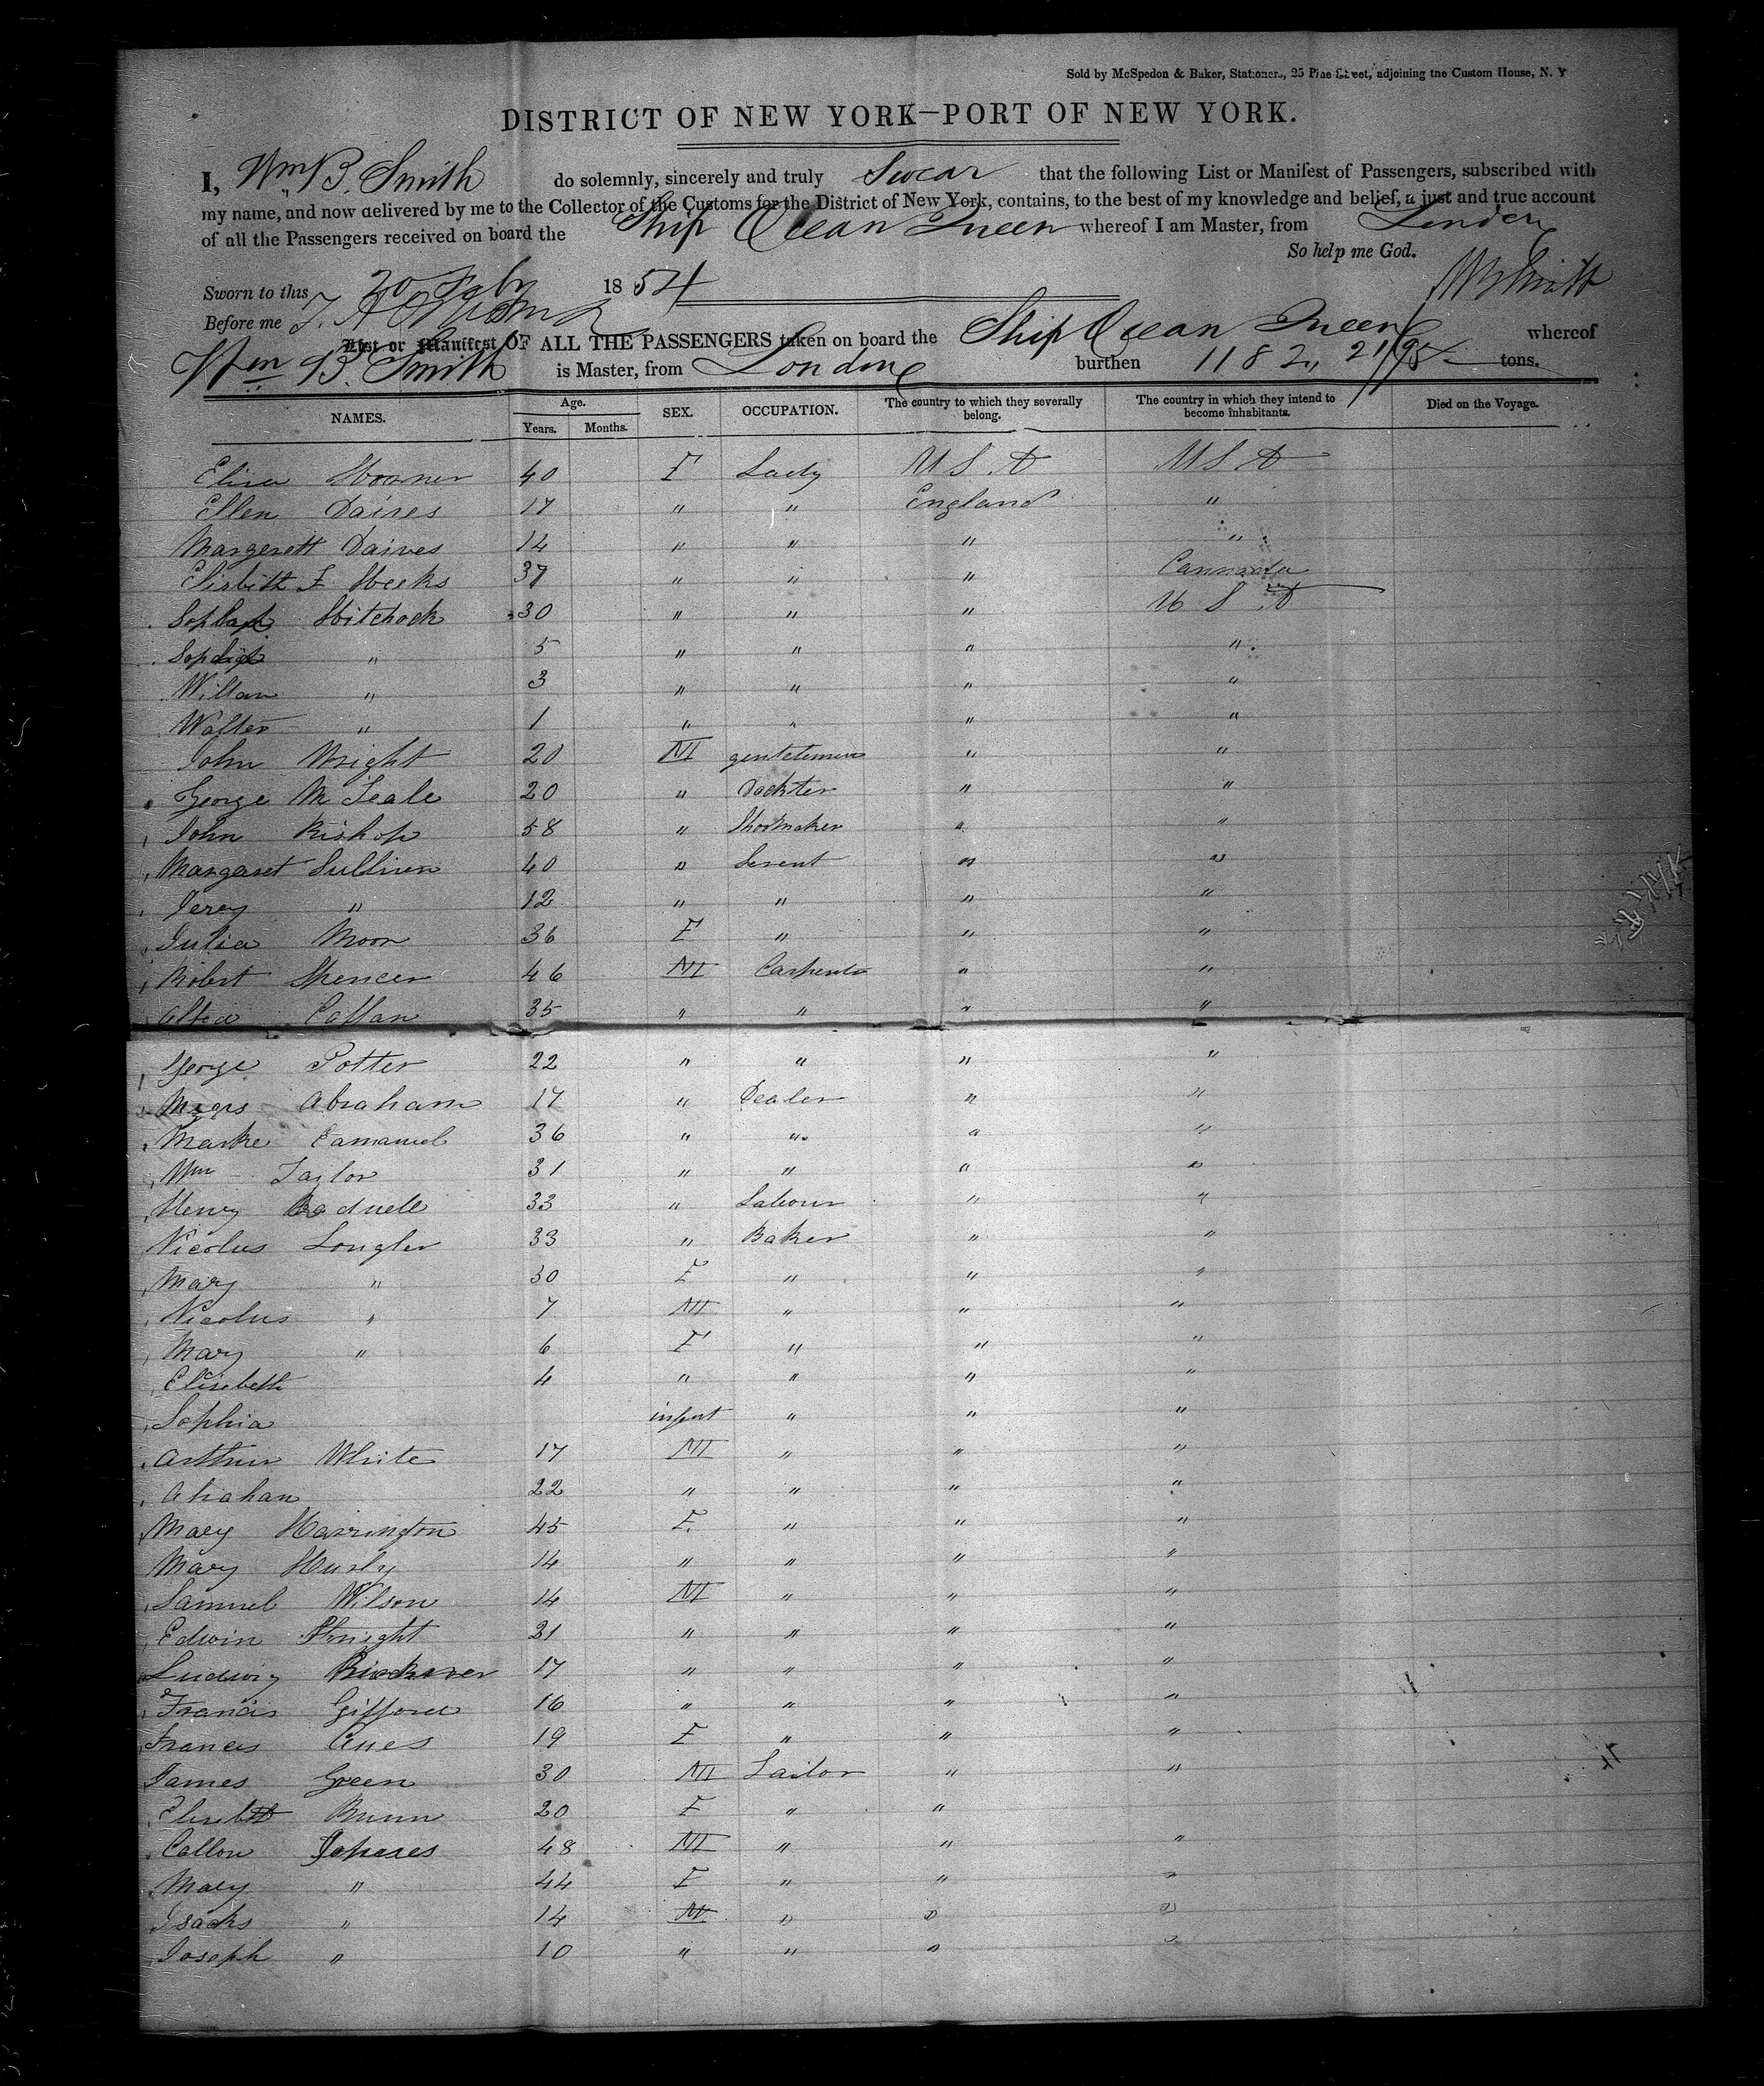 Sold by McSpedon & Baker, Stationers, 25 Pine Street, adjoining the Custom House, N. Y
DISTRICT OF NEW YORK—PORT OF NEW YORK.
I, Wm B. Smith do solemnly, sincerely and truly Swear that the following List or Manifest of Passengers, subscribed with
my name, and now delivered by me to the Collector of the Customs for the District of New York, contains, to the best of my knowledge and belief, a just and true account
of all the Passengers received on board the Ship Ocean Queen whereof I am Master, from London
So help me God.
Sworn to this 20 Feby 1854 WB Smith
Before me
List or Manifest OF ALL THE PASSENGERS taken on board the Ship Ocean Queen whereof
Wm B. Smith is Master, from London burthen 1182, 21/95 tons.
NAMES. Age. Years. Months. SEX. OCCUPATION. The country to which they severally belong. The country in which they intend to become inhabitants. Died on the Voyage.
Elisa 40 F Lady U S A U S A
Ellen Daives 17 " " England "
Margerett Daives 14 " " " "
Elisbith F Weeks 37 " " " Cannada
Hitchock 30 " " " U S A
" 5 " " " "
Willam " 3 " " " "
Walter " 1 " " " "
John Wright 20 M gentelman " "
George M Teale 20 " Dockter " "
John Bishop 58 " Shoemaker " "
Margaret Sulliven 40 " Servent " "
Jerey " 12 " " " "
Julia Moon 36 F " " "
Robert Spencer 46 M Carpente " "
35 " " " "
George Potter 22 " " " "
Abraham 17 " Dealer " "
Marke Eamanuel 36 " " " "
Wm Taylor 31 " " " "
Henry 33 " Labour " "
Nicolus Longler 33 " Baker " "
Mary " 30 F " " "
Nicolus " 7 M " " "
Mary " 6 F " " "
Elisebeth 4 " " " "
Sophia infent " " "
Arthur White 17 M " " "
Abahan 22 " " " "
Mary Harrington 45 F. " " "
Mary Hurly 14 " " " "
Samuel Wilson 14 M " " "
Edwin 21 " " " "
Ludwig 17 " " " "
Francis Gifford 16 " " " "
Frances 19 F " " "
James Green 30 M Tailor " "
Elisebeth Bunn 20 F " "
Callow 48 M " " "
Mary " 44 F " " "
Isacks " 14 M " " "
Joseph " 10 " " " "